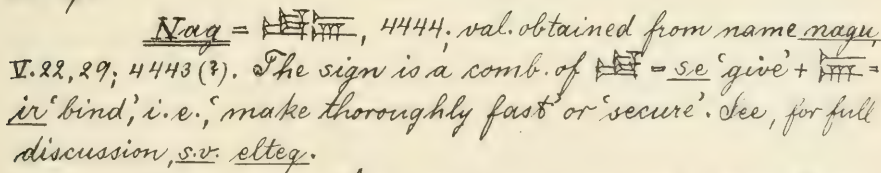 Nag = 𒋧𒅕, 4444; val. obtained from name nagu,
V. 22, 29; 4443 (?). The sign is a comb. of 𒋧 = se 'give' + 𒅕 =
ir 'bind', i.e., 'make thoroughly fast' or 'secure'. See, for full
discussion, s.v. elteg.